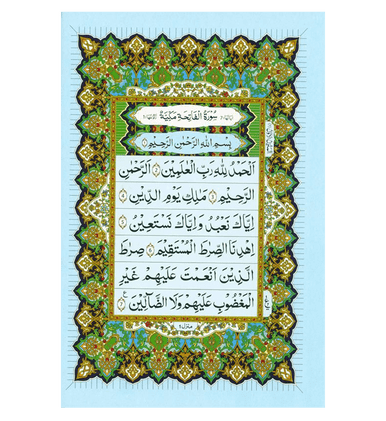 سُوْرَةُ الْفَاتِحَةِ مَكِّيَّةٌ
بِسْمِ اللّٰهِ الرَّحْمٰنِ الرَّحِيْمِ ۝۱
اَلْحَمْدُ لِلّٰهِ رَبِّ الْعٰلَمِيْنَ ۝۲ الرَّحْمٰنِ
الرَّحِيْمِ ۝۳ مٰلِكِ يَوْمِ الدِّيْنِ ۝۴
اِيَّاكَ نَعْبُدُ وَاِيَّاكَ نَسْتَعِيْنُ ۝۵
اِهْدِنَا الصِّرَاطَ الْمُسْتَقِيْمَ ۝۶ صِرَاطَ
الَّذِيْنَ اَنْعَمْتَ عَلَيْهِمْ غَيْرِ
الْمَغْضُوْبِ عَلَيْهِمْ وَلَا الضَّآلِّيْنَ ۝۷
منزل ۱